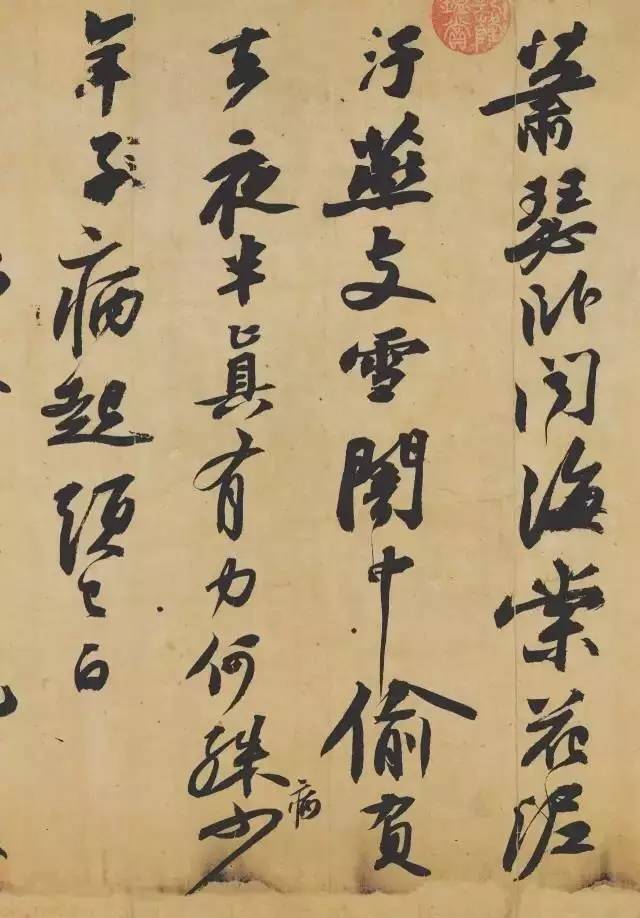 蕭瑟卧聞海棠花泥
汙燕支雪闇中偷負
去夜半真有力何殊病少
年子病起頭已白